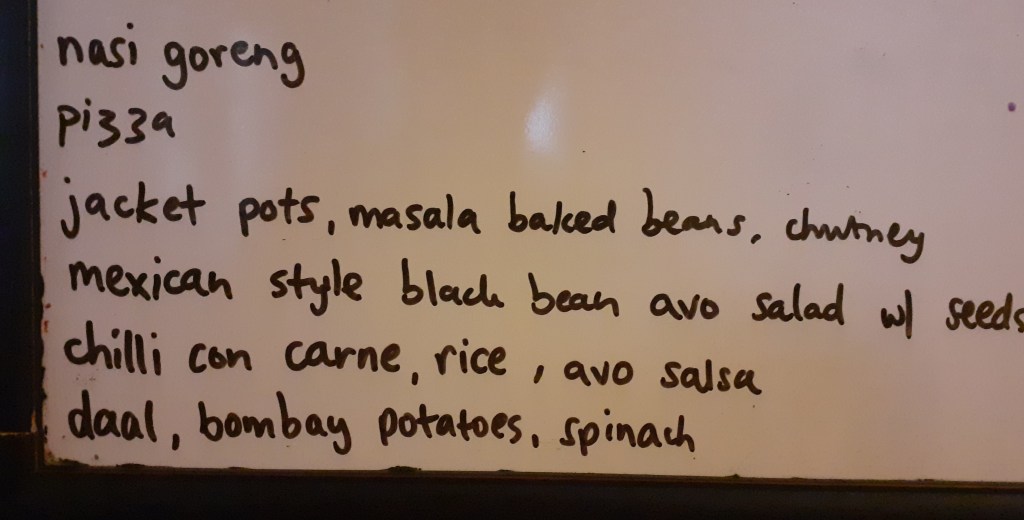 nasi goreng
pizza
jacket pots, masala baked beans, chutney
mexican style black bean avo salad w/ seeds
chilli con carne, rice, avo salsa
daal, bombay potatoes, spinach